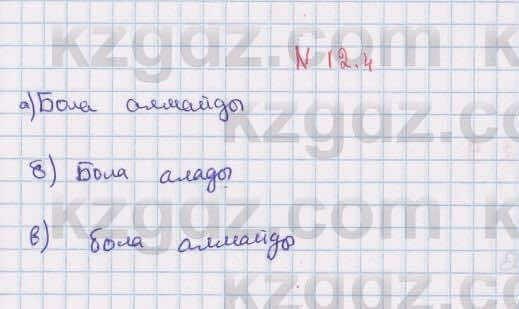 kzgdz.com
N 12.4
а) Бола алмайды
kzgdz.com
б) Бола алады
kzgdz.com
в) бола алмайды
kzgdz.com